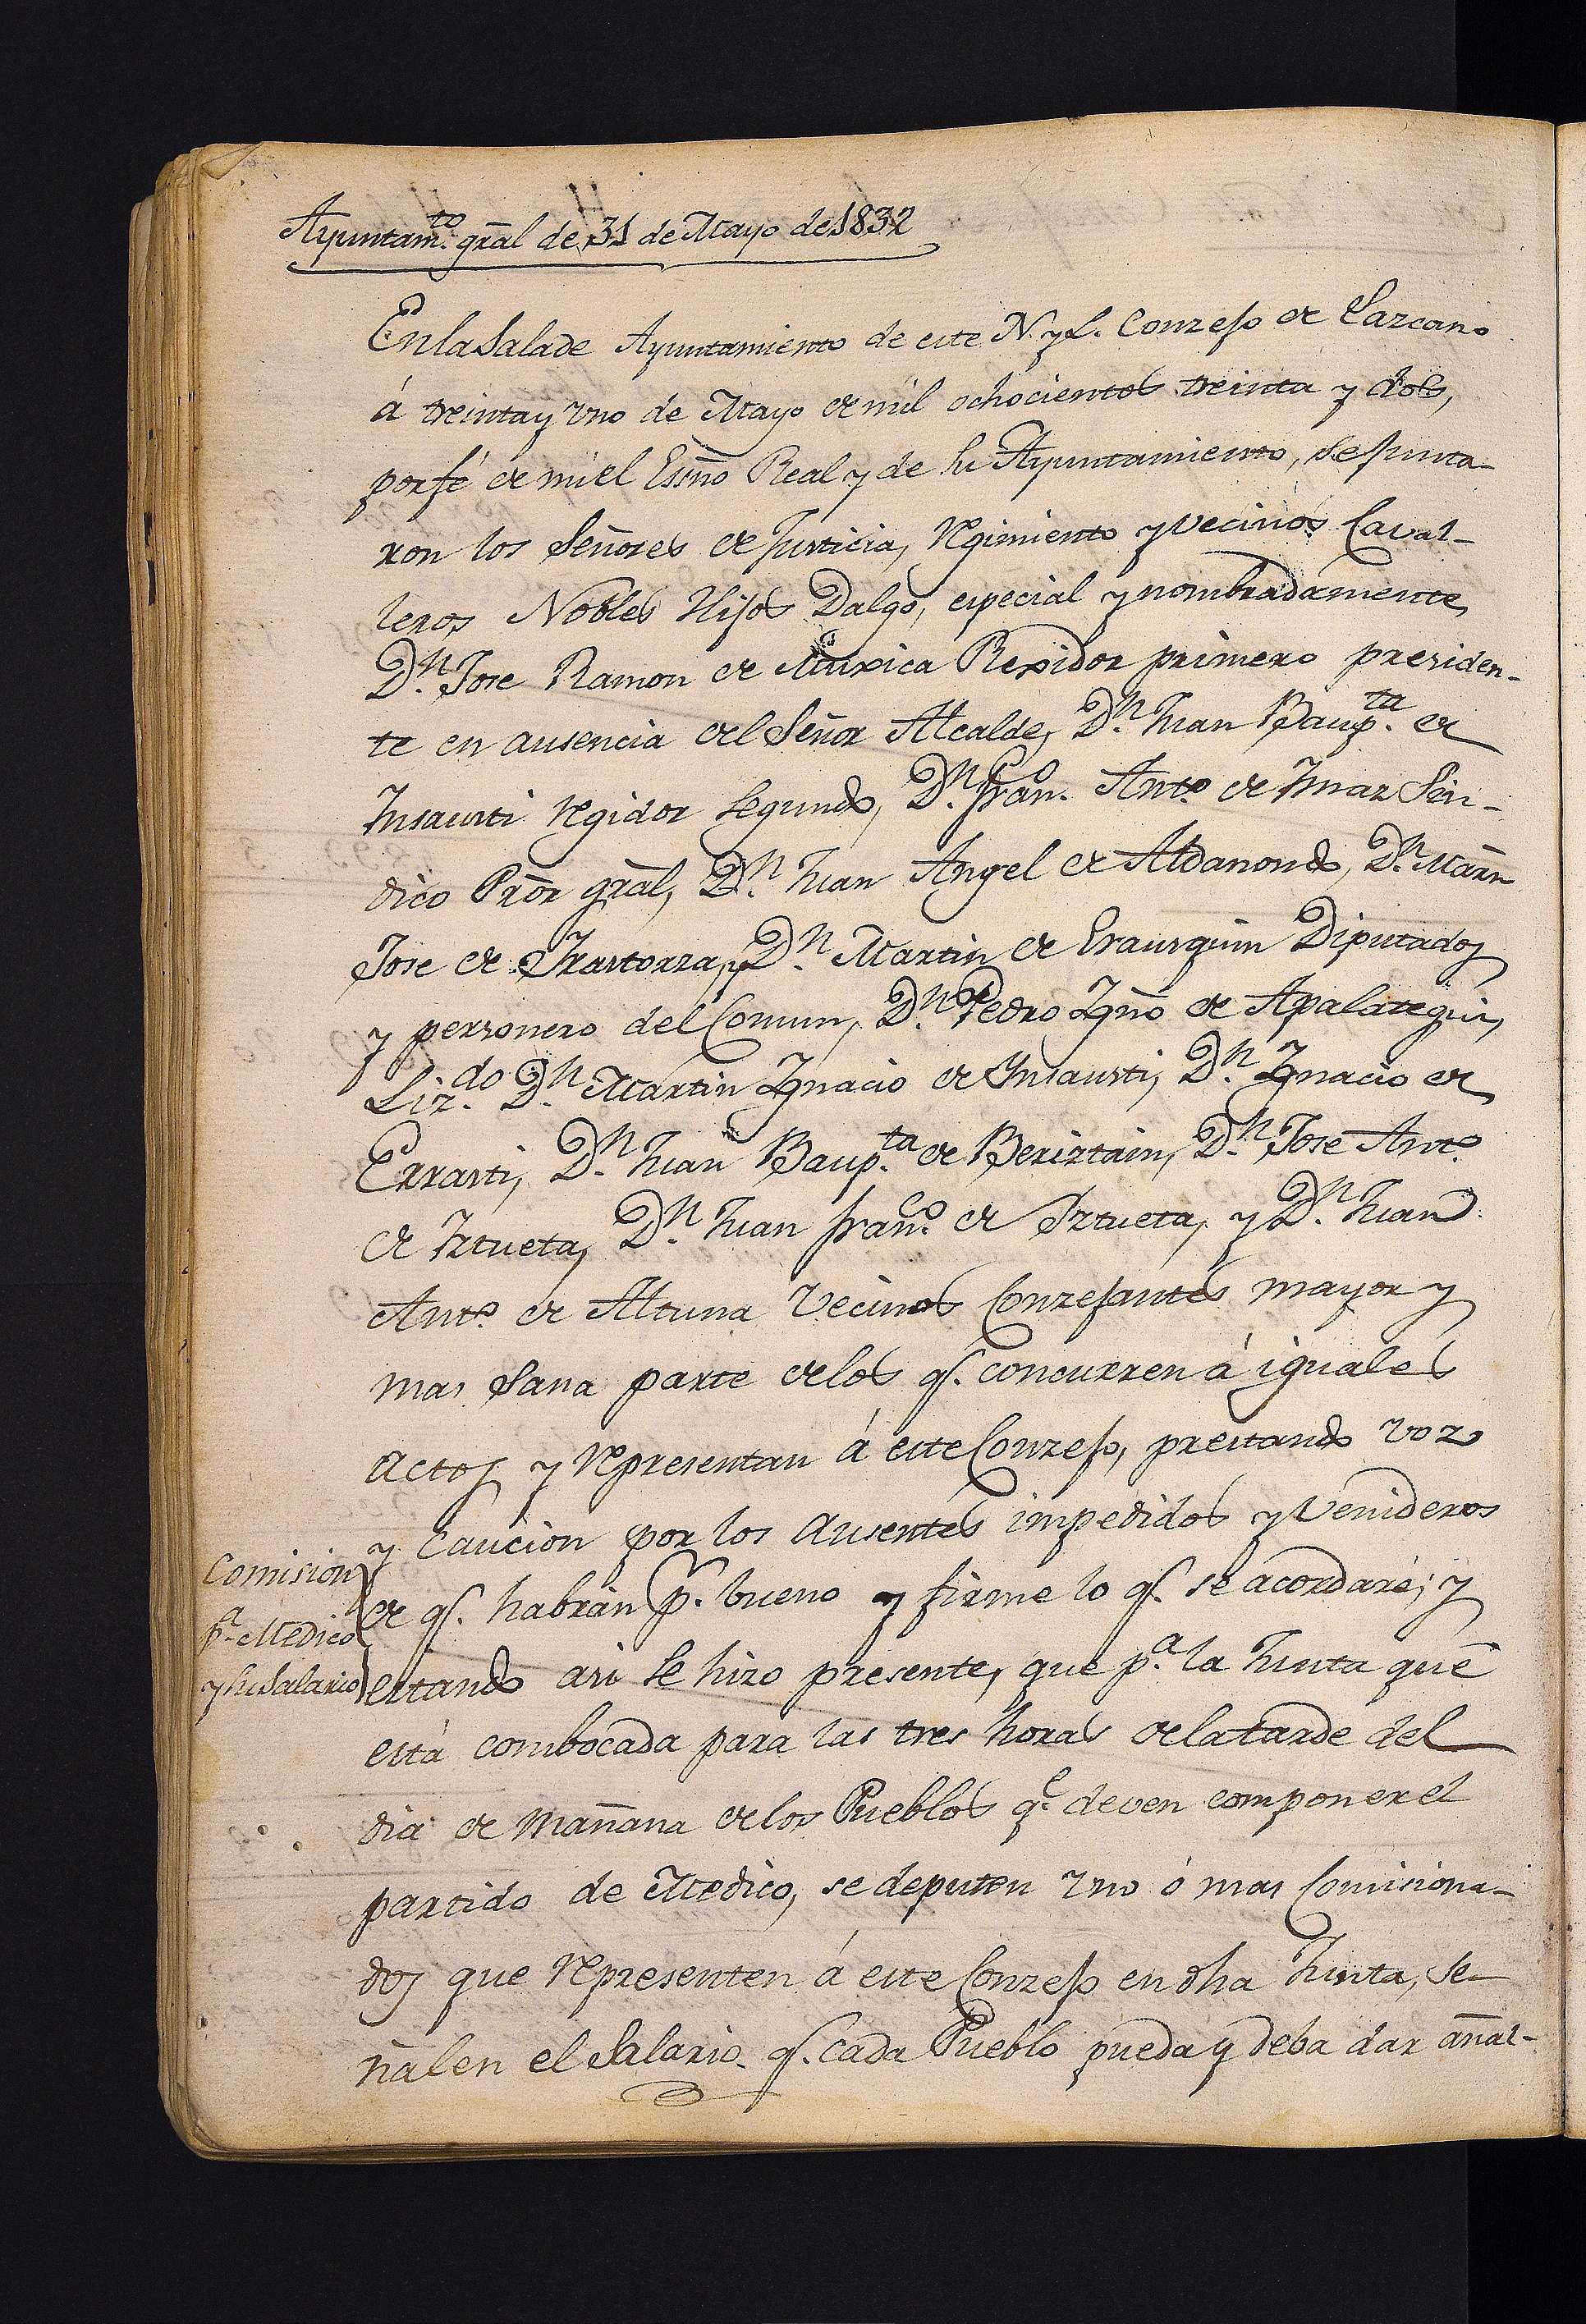 Ayuntam.to grãl de 31 de Mayo de 1832
En la Sala de Ayuntamiento de este N. y L. Conzejo de Lazcano
á treinta y uno de Mayo de mil ochocientos treinta y dos,
por fé de mi el Essño Real y de su Ayuntamiento, se junta-
ron los Señores de Justicia, Regimiento y vecinos Caval-
leros Nobles Hijos Dalgo, especial y nombradamente
D.n Jose Ramon de Muxica Rexidor primero presiden-
te en ausencia del Señor Alcalde, D.n Juan Baup.ta de
Insausti Regidor segundo, D.n Fran.co Ant.o de Imaz Sin-
dico Prõr grãl, D.n Juan Angel de Aldanondo, D.n Marñ
Jose de Irastorza, y D.n Martin de Erausquin Diputados
y personero del Comun, D.n Pedro Ignõ de Apalategui,
Liz.do D.n Martin Ignacio de Insausti, D.n Ignacio de
Errasti, D.n Juan Baup.ta de Beriztain, D.n Jose Ant.o
de Iztueta, D.n Juan Fran.co de Iztueta, y D.n Juan
Ant.o de Altuna Vecinos Conzejantes mayor y
mas sana parte de los q. concurren á iguales
actos y representan á este Conzejo, prestando voz
y caucion por los ausentes impedidos y venideros
Comision
p.a Medico
y su Salario
de q. habrán p.r bueno y firme lo q. se acordaré; y
estando asi se hizo presente, que p.a la Junta que
está combocada para las tres horas de la tarde del
dia de mañana de los Pueblos q.e deven componer el
partido de Medico, se deputen uno ó mas Comisiona-
dos que representen á este Conzejo en dha Junta, se-
ñalen el Salario q. cada Pueblo pueda y deba dar añal-